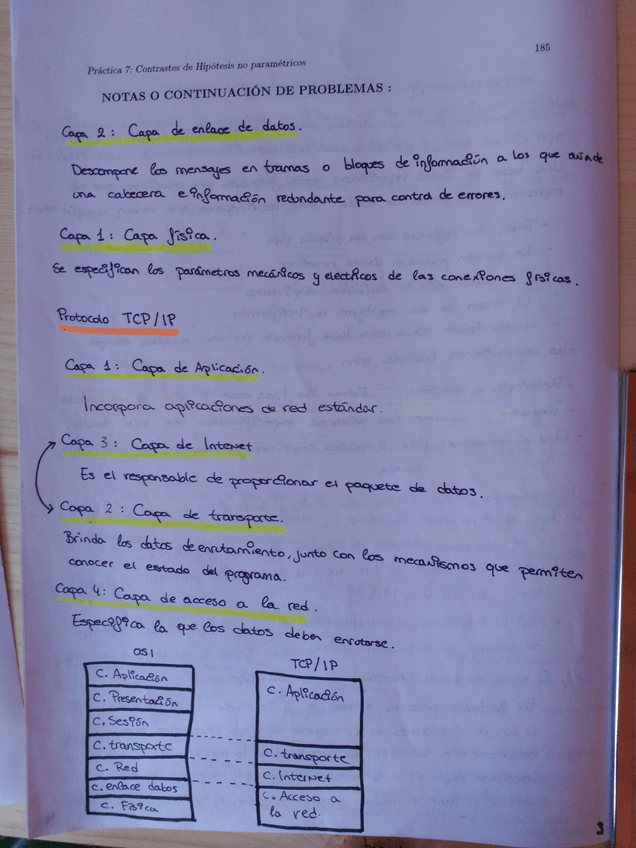 185
Práctica 7: Contrastes de Hipótesis no paramétricos
NOTAS O CONTINUACIÓN DE PROBLEMAS :
Capa 2: Capa de enlace de datos.
Descompone los mensajes en tramas o bloques de información a los que
una cabecera e información redundante para control de errores.
Capa 1: Capa física.
Se especifican los parámetros mecánicos y electricos de las conexiones físicas.
Protocolo TCP/IP
Capa 1: Capa de Aplicación.
Incorpora aplicaciones de red estándar.
Capa 3: Capa de Internet
Es el responsable de proporcionar el paquete de datos.
Capa 2: Capa de transporte.
Brinda los datos de enrutamiento, junto con los mecanismos que permiten
conocer el estado del programa.
Capa 4: Capa de acceso a la red.
Especifica la que los datos deben enrutarse.
OSI
C. Aplicación
C. Presentación
C. Sesión
C. transporte
C. Red
C. enlace datos
C. Física
TCP/IP
C. Aplicación
C. transporte
C. Internet
C. Acceso a
la red.
3